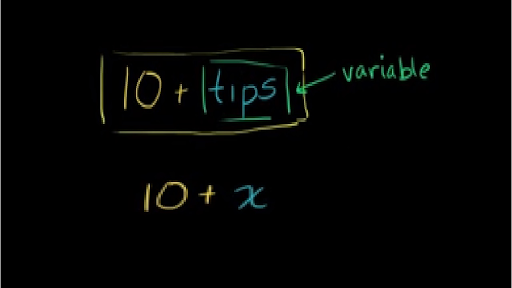 10 + tips
variable
10 + x